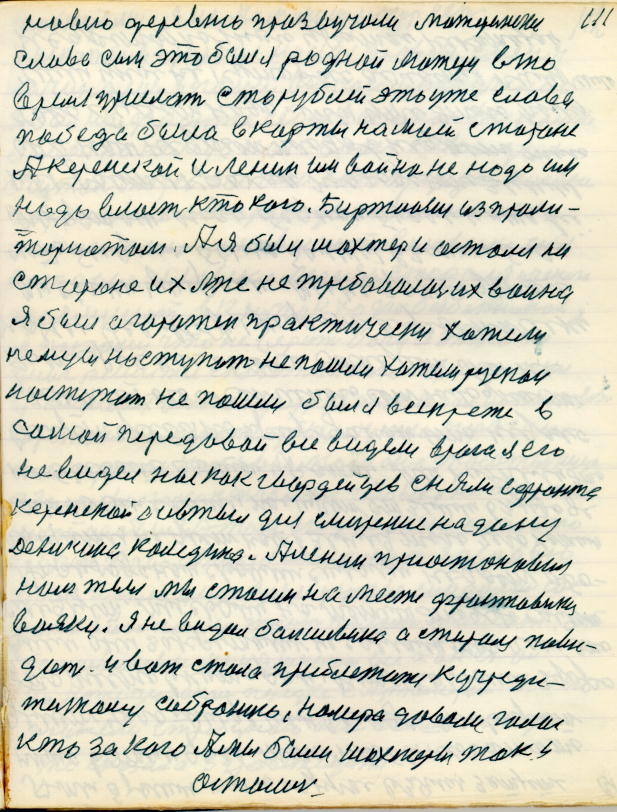 111
новую деревню прозвучали матерински
слова сын это были родной матери в то
время прислать сто рублей это уже слава
победа была в карты на моей стороне
А керенской и ленин им война не надо им
надо власт кто кого. Биртовы из проли-
ториотом. А я были шахтери остали на
стороне их мне не требовалась их война
Я был огорожен практически хотели
немцы наступат не пошли хотели руский
наступат не пошли был я впереже в
самой передовой все видели врага я его
не видел нас как гвордейцев сняли с фронта
керенской оивтыл для смирение на дону
деникина Каледина. А ленин приостоновил
нам тыл мы стоим на месте фронтовики
вояки. Я не видал балшевика а стораус пови-
дат. и вот стала приближат к учреди-
телному собранию, номера довали голос
кто за кого А мы были шахтеры так и
остались.